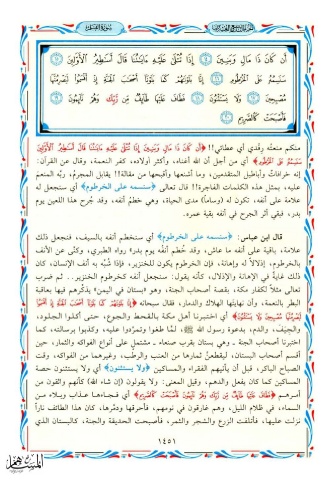 الجزء التاسع والعشرون
سورة القلم
أَن كَانَ ذَا مَالٍ وَبَنِينَ ﴿١٤﴾ إِذَا تُتْلَىٰ عَلَيْهِ ءَايَٰتُنَا قَالَ أَسَٰطِيرُ الْأَوَّلِينَ ﴿١٥﴾
سَنَسِمُهُۥ عَلَى الْخُرْطُومِ ﴿١٦﴾ إِنَّا بَلَوْنَٰهُمْ كَمَا بَلَوْنَآ أَصْحَٰبَ الْجَنَّةِ إِذْ أَقْسَمُوا۟ لَيَصْرِمُنَّهَا
مُصْبِحِينَ ﴿١٧﴾ وَلَا يَسْتَثْنُونَ ﴿١٨﴾ فَطَافَ عَلَيْهَا طَآئِفٌ مِّن رَّبِّكَ وَهُمْ نَآئِمُونَ ﴿١٩﴾
فَأَصْبَحَتْ كَالصَّرِيمِ ﴿٢٠﴾
منكم منعتُه رِفدي أي عطائي!! ﴿أَن كَانَ ذَا مَالٍ وَبَنِينَ إِذَا تُتْلَىٰ عَلَيْهِ ءَايَٰتُنَا قَالَ أَسَٰطِيرُ الْأَوَّلِينَ
سَنَسِمُهُۥ عَلَى الْخُرْطُومِ﴾ أي من أجل أن الله أغناه، وأكثر أولاده، كفر النعمة، وقال عن القرآن:
إنه خرافاتُ وأباطيل المتقدمين، وما أشنعها وأقبحها من مقالة!! يقابل المجرمُ، ربَّه المنعمَ
عليه، بمثل هذه الكلمات الفاجرة!! قال تعالى ﴿سنسمه على الخرطوم﴾ أي سنجعل له
علامة على أنفه، تكون له (وساماً) مدى الحياة، وهي خطمُ أنفه، وقد جُرح هذا اللعين يوم
بدر، فبقي أثر الجرح في أنفه بقية عمره.
قال ابن عباس: ﴿سنسمه على الخرطوم﴾ أي سنخطم أنفه بالسيف، فنجعل ذلك
علامة، باقية على أنفه ما عاش، وقد خُطم أنفُه يوم بدر» رواه الطبري، وكنَّى عن الأنف
بالخرطوم، إذلالاً له وإهانة، فإن الخرطوم يكون للخنزير، فإذا شُبِّه به أنف الإنسان، كان
ذلك غايةً في الإهانة والإذلال، كأنه يقول: سنجعل أنفه كخرطوم الخنزير.. ثم ضرب
تعالى مثلاً لكفار مكة، بقصة أصحاب الجنة، وهو «بستان في اليمن» يذكّرهم فيها بعاقبة
البطر بالنعمة، وأن نهايتها الهلاك والدمار، فقال سبحانه ﴿إِنَّا بَلَوْنَٰهُمْ كَمَا بَلَوْنَآ أَصْحَٰبَ الْجَنَّةِ إِذْ أَقْسَمُوا۟
لَيَصْرِمُنَّهَا مُصْبِحِينَ﴾ أي اختبرنا أهل مكة بالقحط والجوع، حتى أكلوا الجلود،
والجِيَف، والدم، بدعوة رسول الله ﷺ، لمَّا طغوا وتمرَّدوا عليه، وكذبوا برسالته، كما
اختبرنا أصحاب الجنة ـ وهي بستان بقرب صنعاء ـ مشتملٍ على أنواع الفواكه والثمار، حين
أقسم أصحاب البستان، ليقطعنَّ ثمارها من العنب والرطب، وغيرهما من الفواكه، وقت
الصباح الباكر، قبل أن يأتيهم الفقراء والمساكين ﴿ولا يستثنون﴾ أي ولا يستثنون حصة
المساكين كما كان يفعل والدهم، وقيل المعنى: ولا يقولون (إن شاء الله) كأنهم واثقون من
أمرهم ﴿فَطَافَ عَلَيْهَا طَآئِفٌ مِّن رَّبِّكَ وَهُمْ نَآئِمُونَ فَأَصْبَحَتْ كَالصَّرِيمِ﴾ أي فجاءها عذاب وبلاء من
السماء، في ظلام الليل، وهم غارقون في نومهم، فأحرقها ودمَّرها، كان هذا الطائف ناراً
نزلت عليها، فأتلفت الزرع والشجر والثمر، فأصبحت الحديقة والجنة، كالبستان الذي
١٤٥١